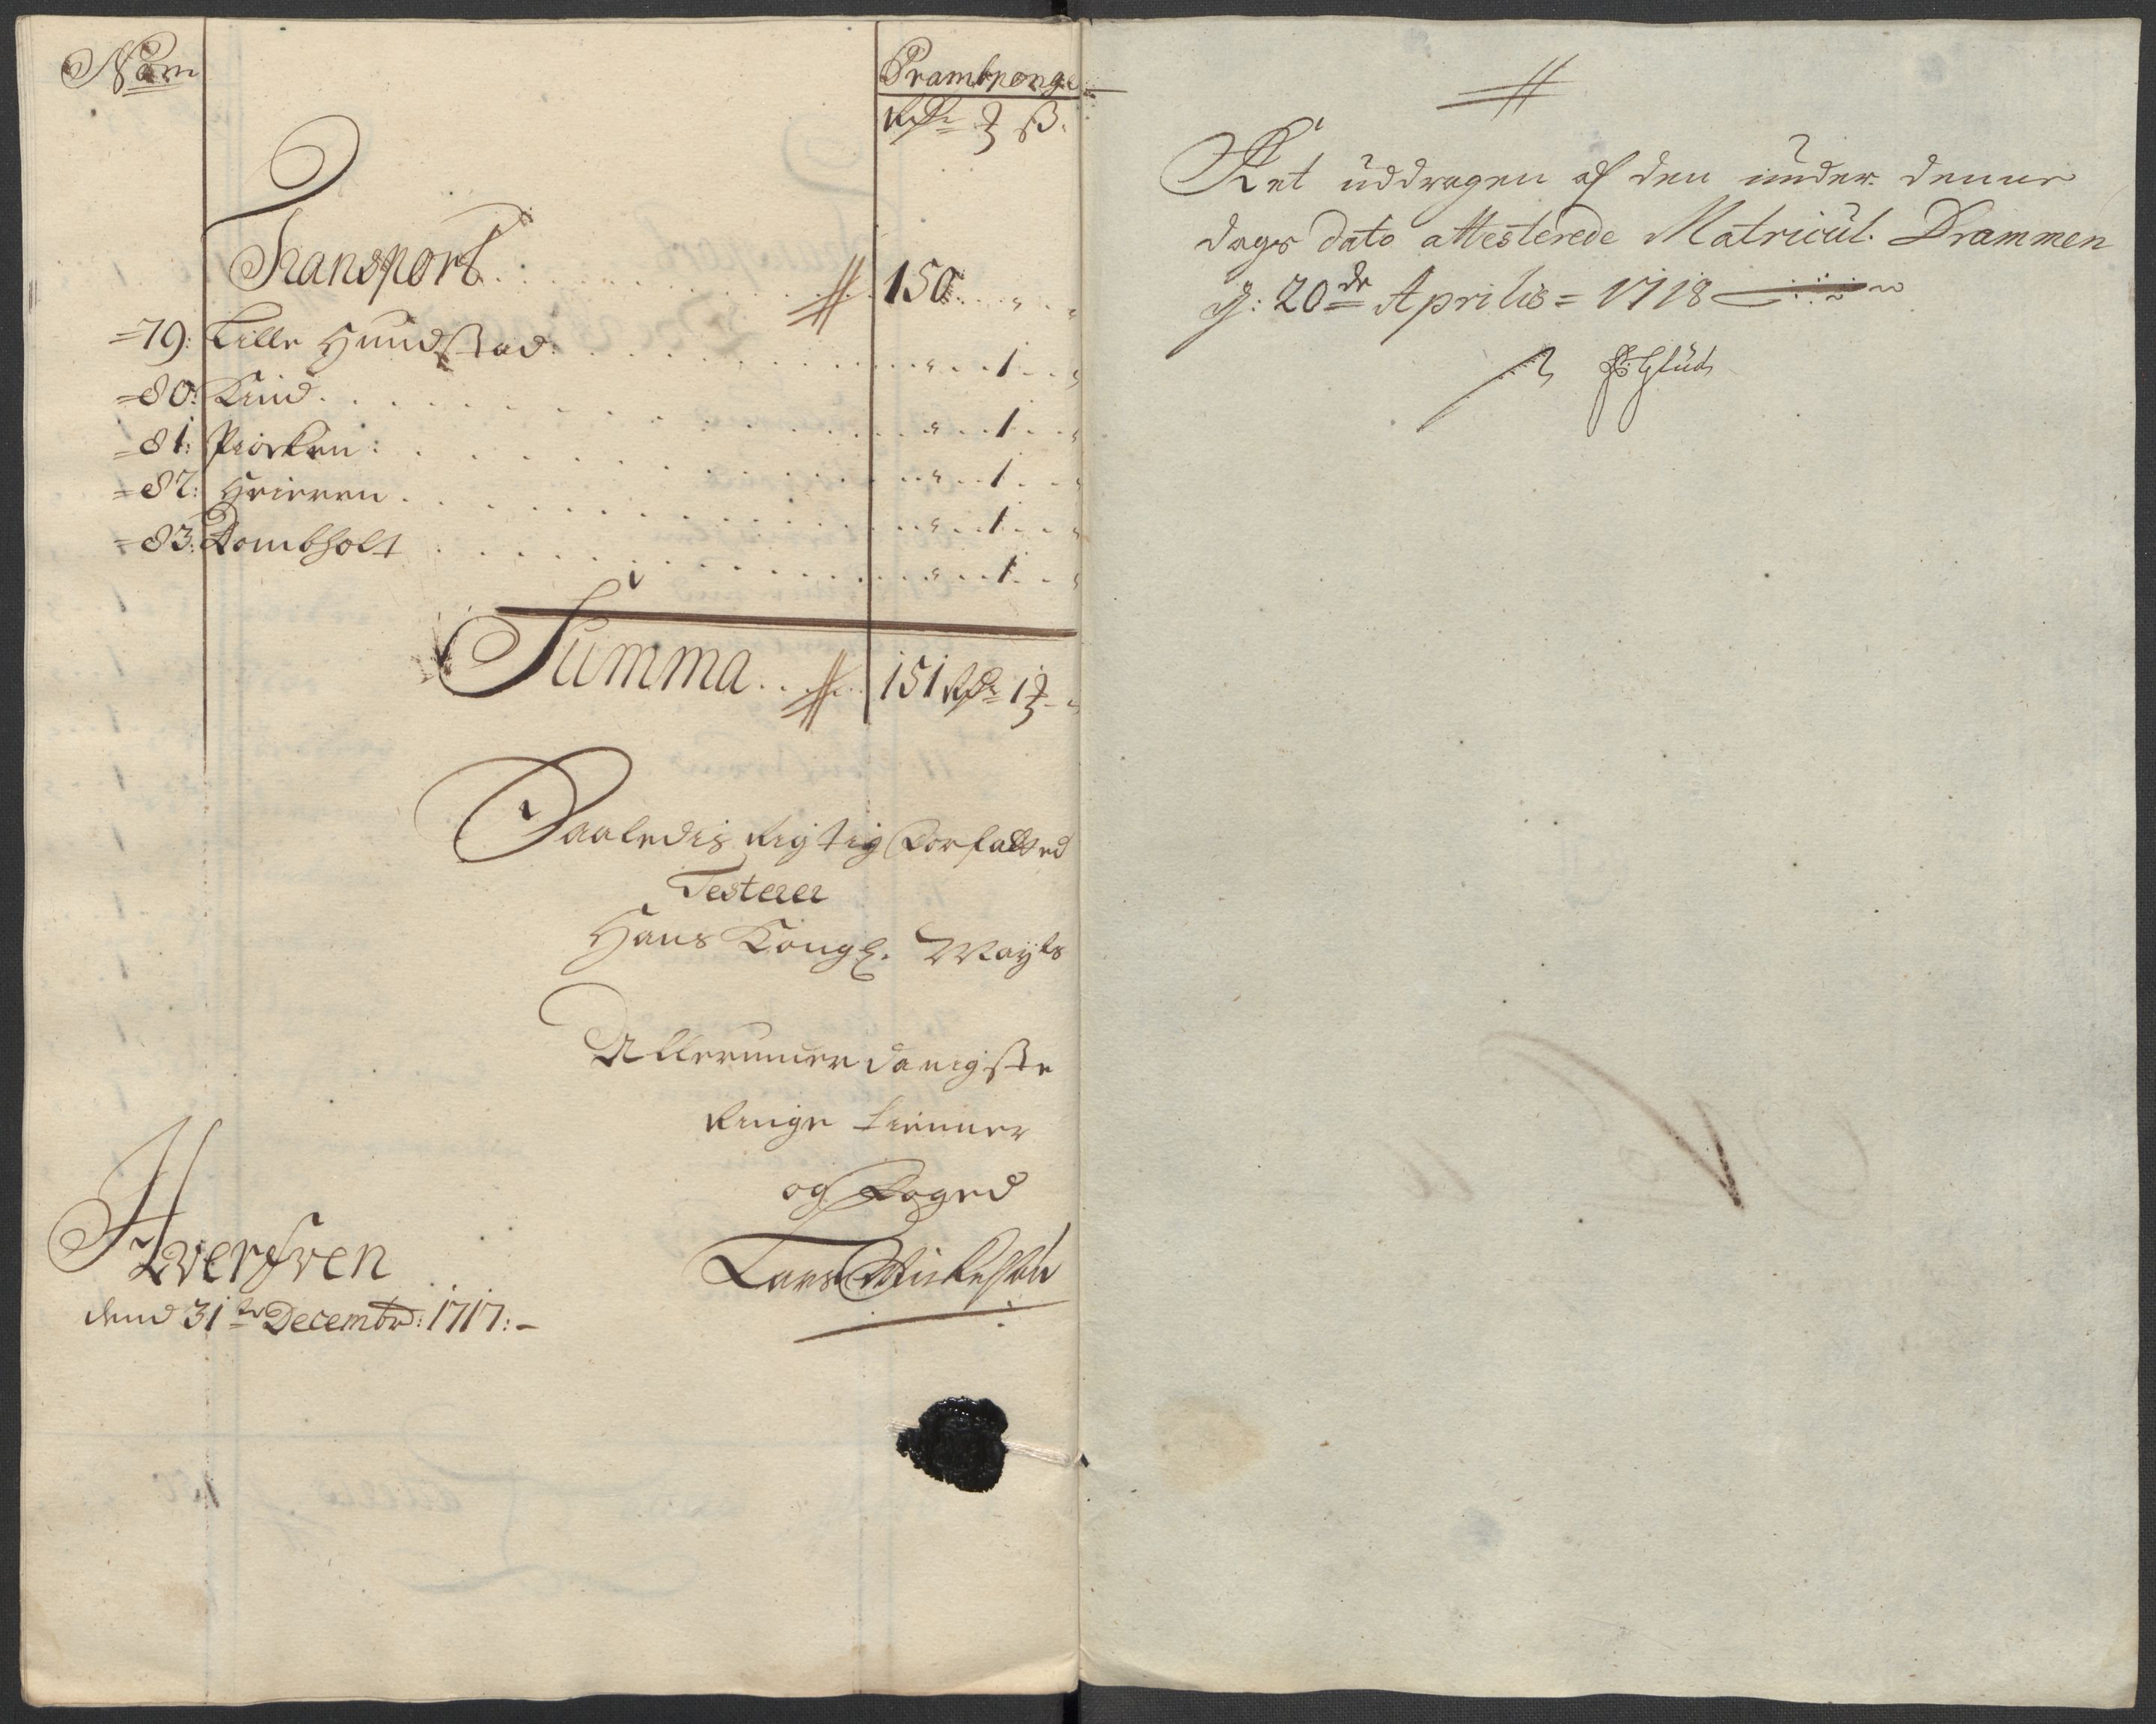 Num
Prambpenge
Rdr ʒ ß.
Transport 150 " "
79: Lille Hundstad: " 1 "
80: Lind " 1 "
81: Piorken: " 1 "
82: Heieren " 1 "
83: Rombholt " 1 "
Summa 151 Rdr 1 ʒ "
Saaledis Rigtig Forfatted
Testerer
Hans Kongl. Mayts
Allerunderdanigste
Ringe tienner
og Foged
Lars
Hverfven
dend 31te Decembr: 1717:
Ret uddragen af den under denne
dags dato attesterede Matricul. Drammen
d: 20de Aprilis = 1718